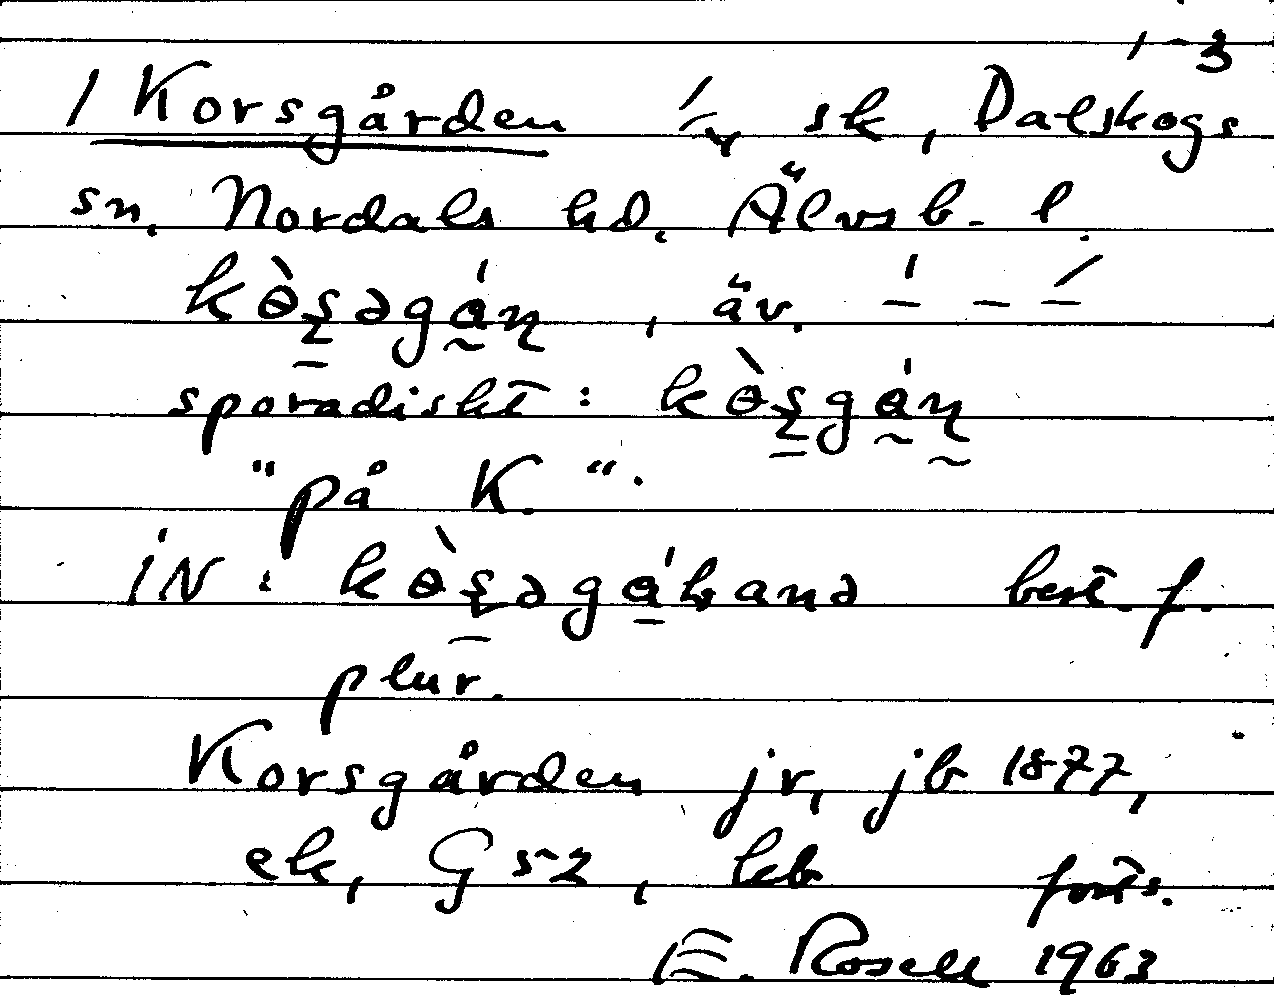 1-3
1 Korsgården 1/4 sk, Dalskogs
sn. Nordals hd. Älvsb. l.
kɵ̀ʂəgáɳ, äv. –́ – –́
sporadiskt: kɵ̀ʂgáɳ
"på K.".
IN: kɵ̀ʂəgáɽ̵ana best. f.
plur.
Korsgården jr, jb 1877,
ek, G 52, kb forts.
E. Rosell 1963